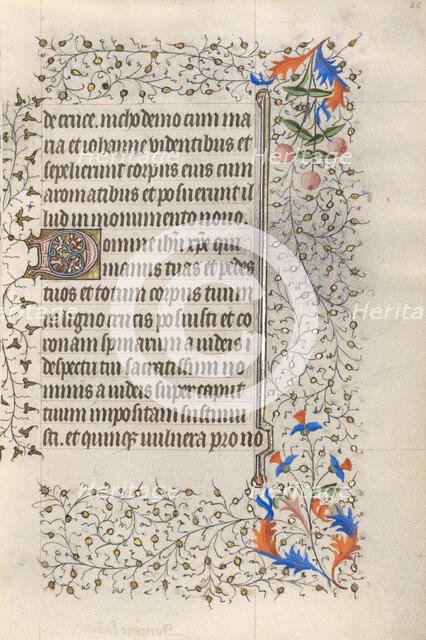 20
de cruce. nichodemo cum ma
ria et iohanne videntibus et
sepelierunt corpus eius cum
aromatibus et posuerunt il
lud in monumento novo.
Domine ihu xpe qui
manus tuas et pedes
tuos et totum corpus tuum
in ligno crucis posuisti et co
ronam spinarum a iudeis i
despectu tui sacratissimi no
minis a iudeis super caput
tuum impositam sustinui
sti. et quinque vulnera pro no
Heritage
Heritage
Heritage
Heritage